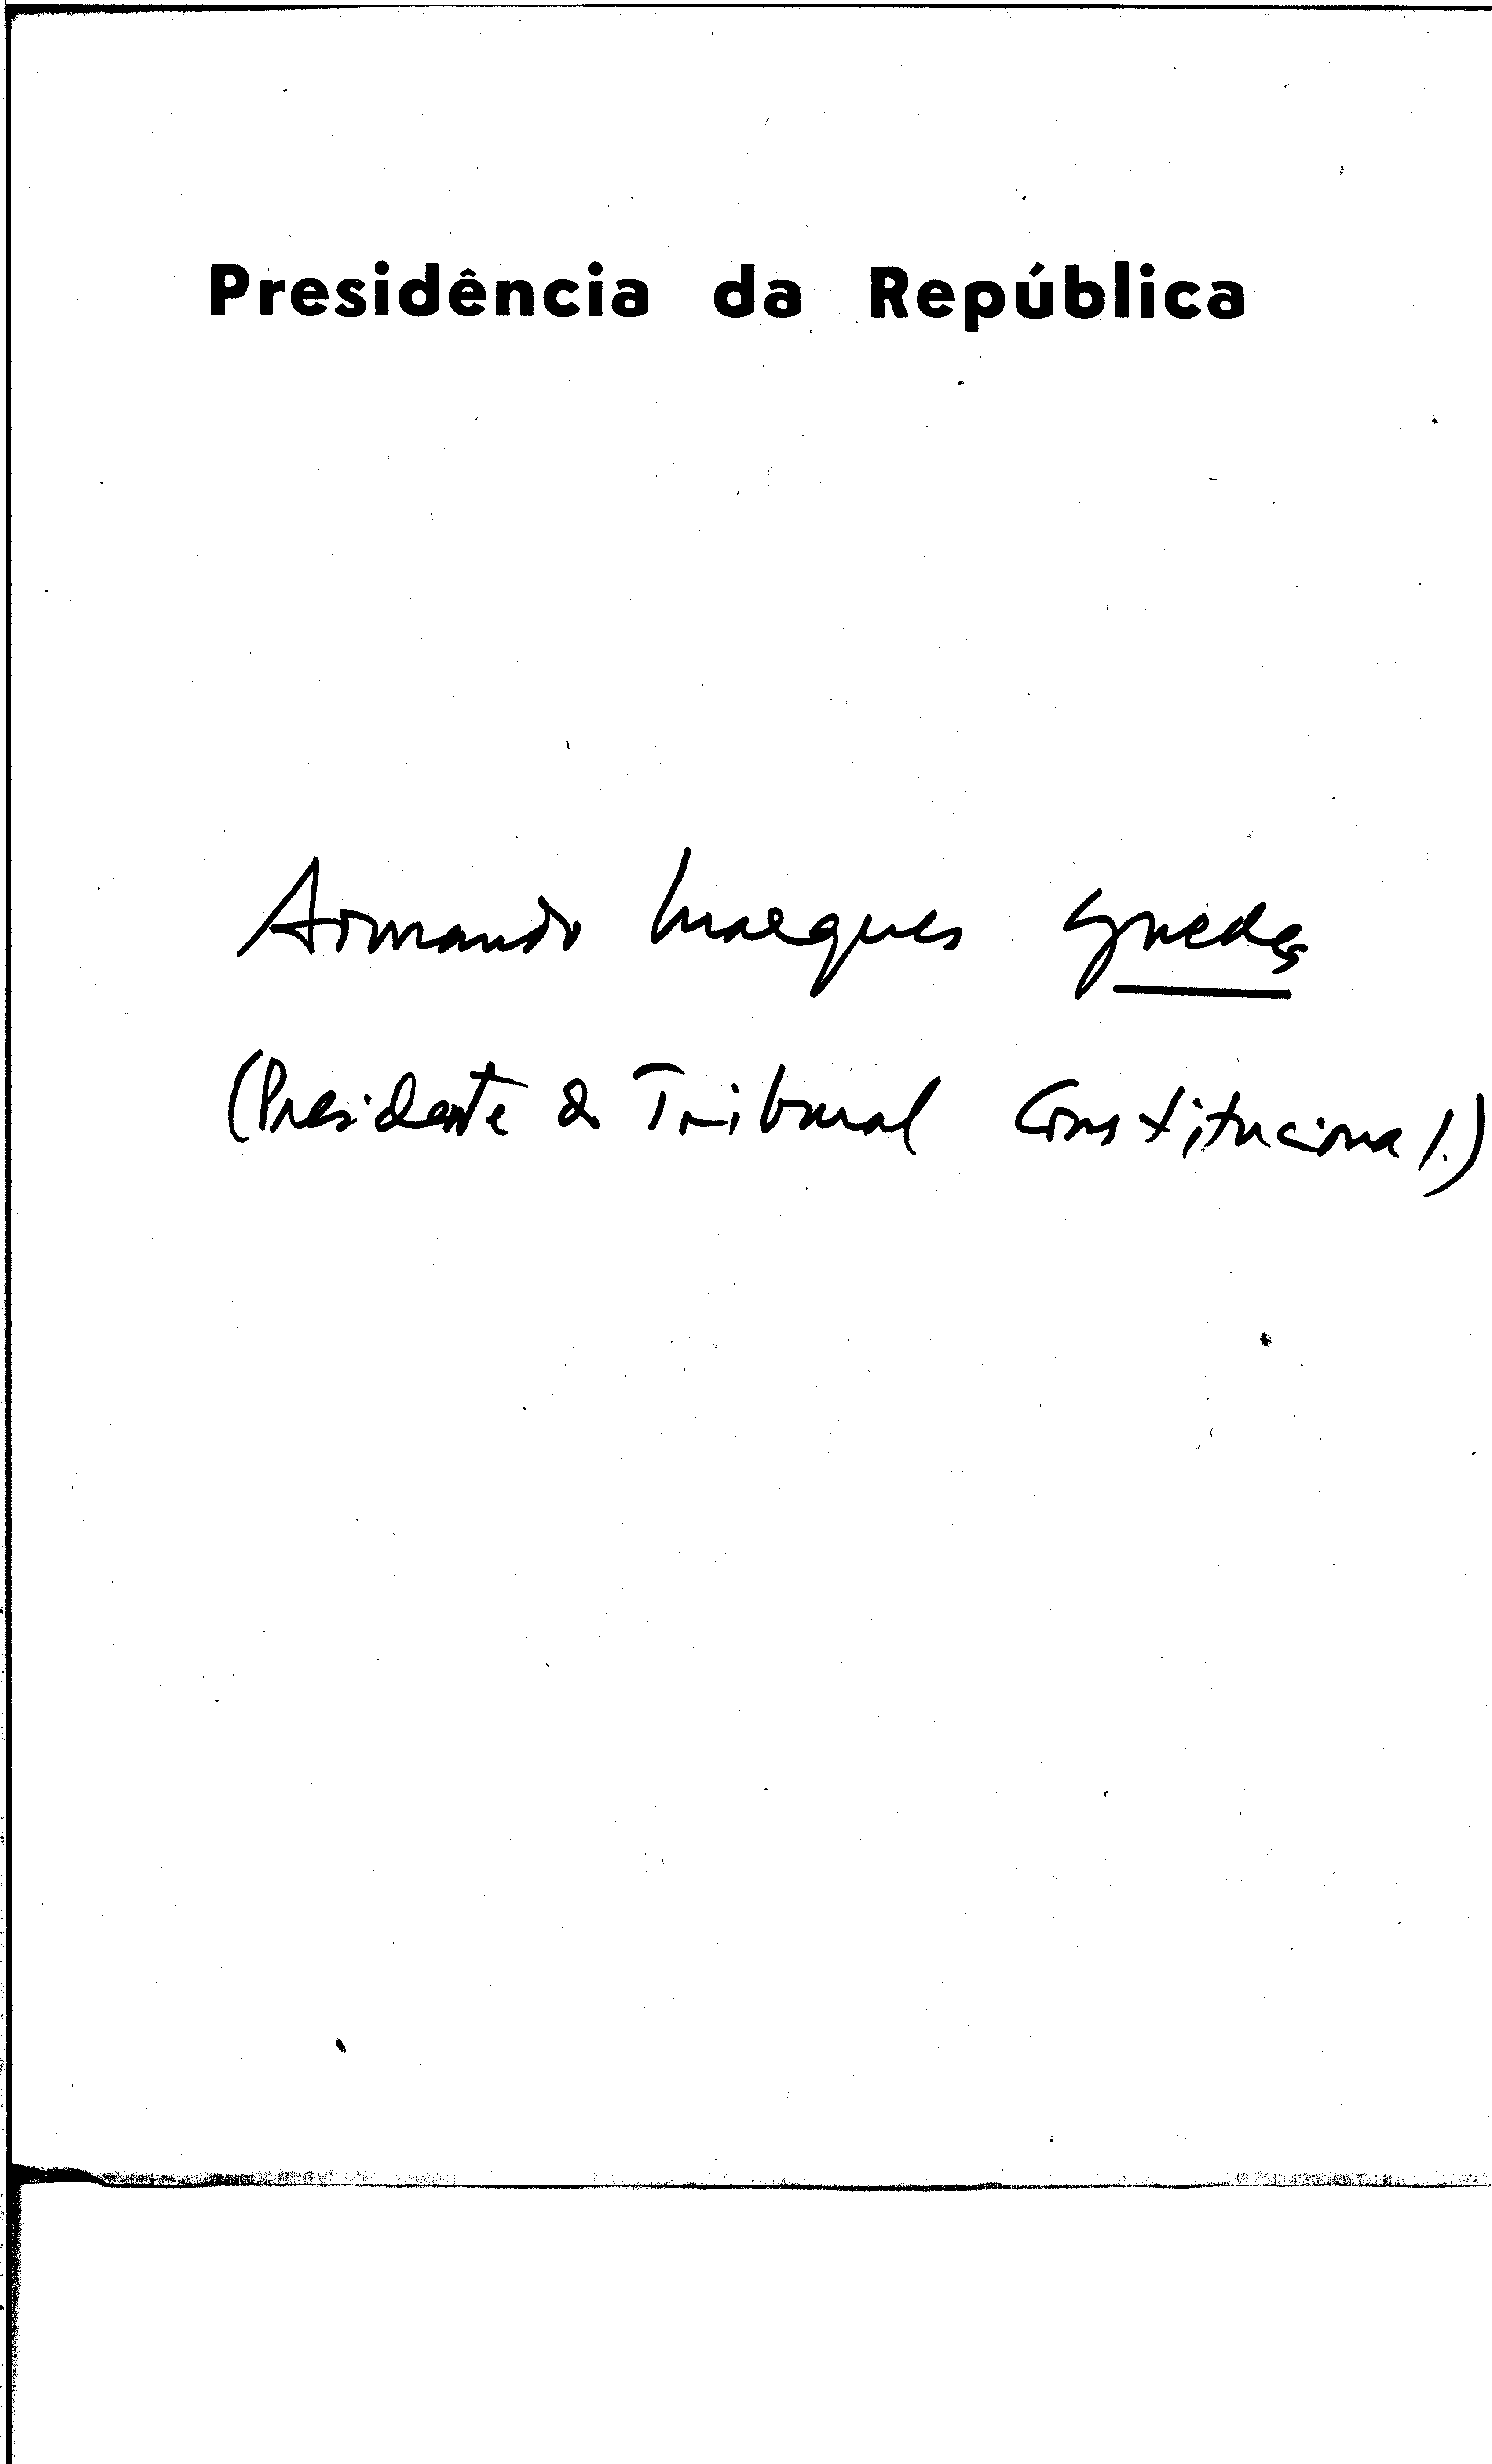 Presidência da República
Armando Marques Guedes
(Presidente do Tribunal Constitucional.)